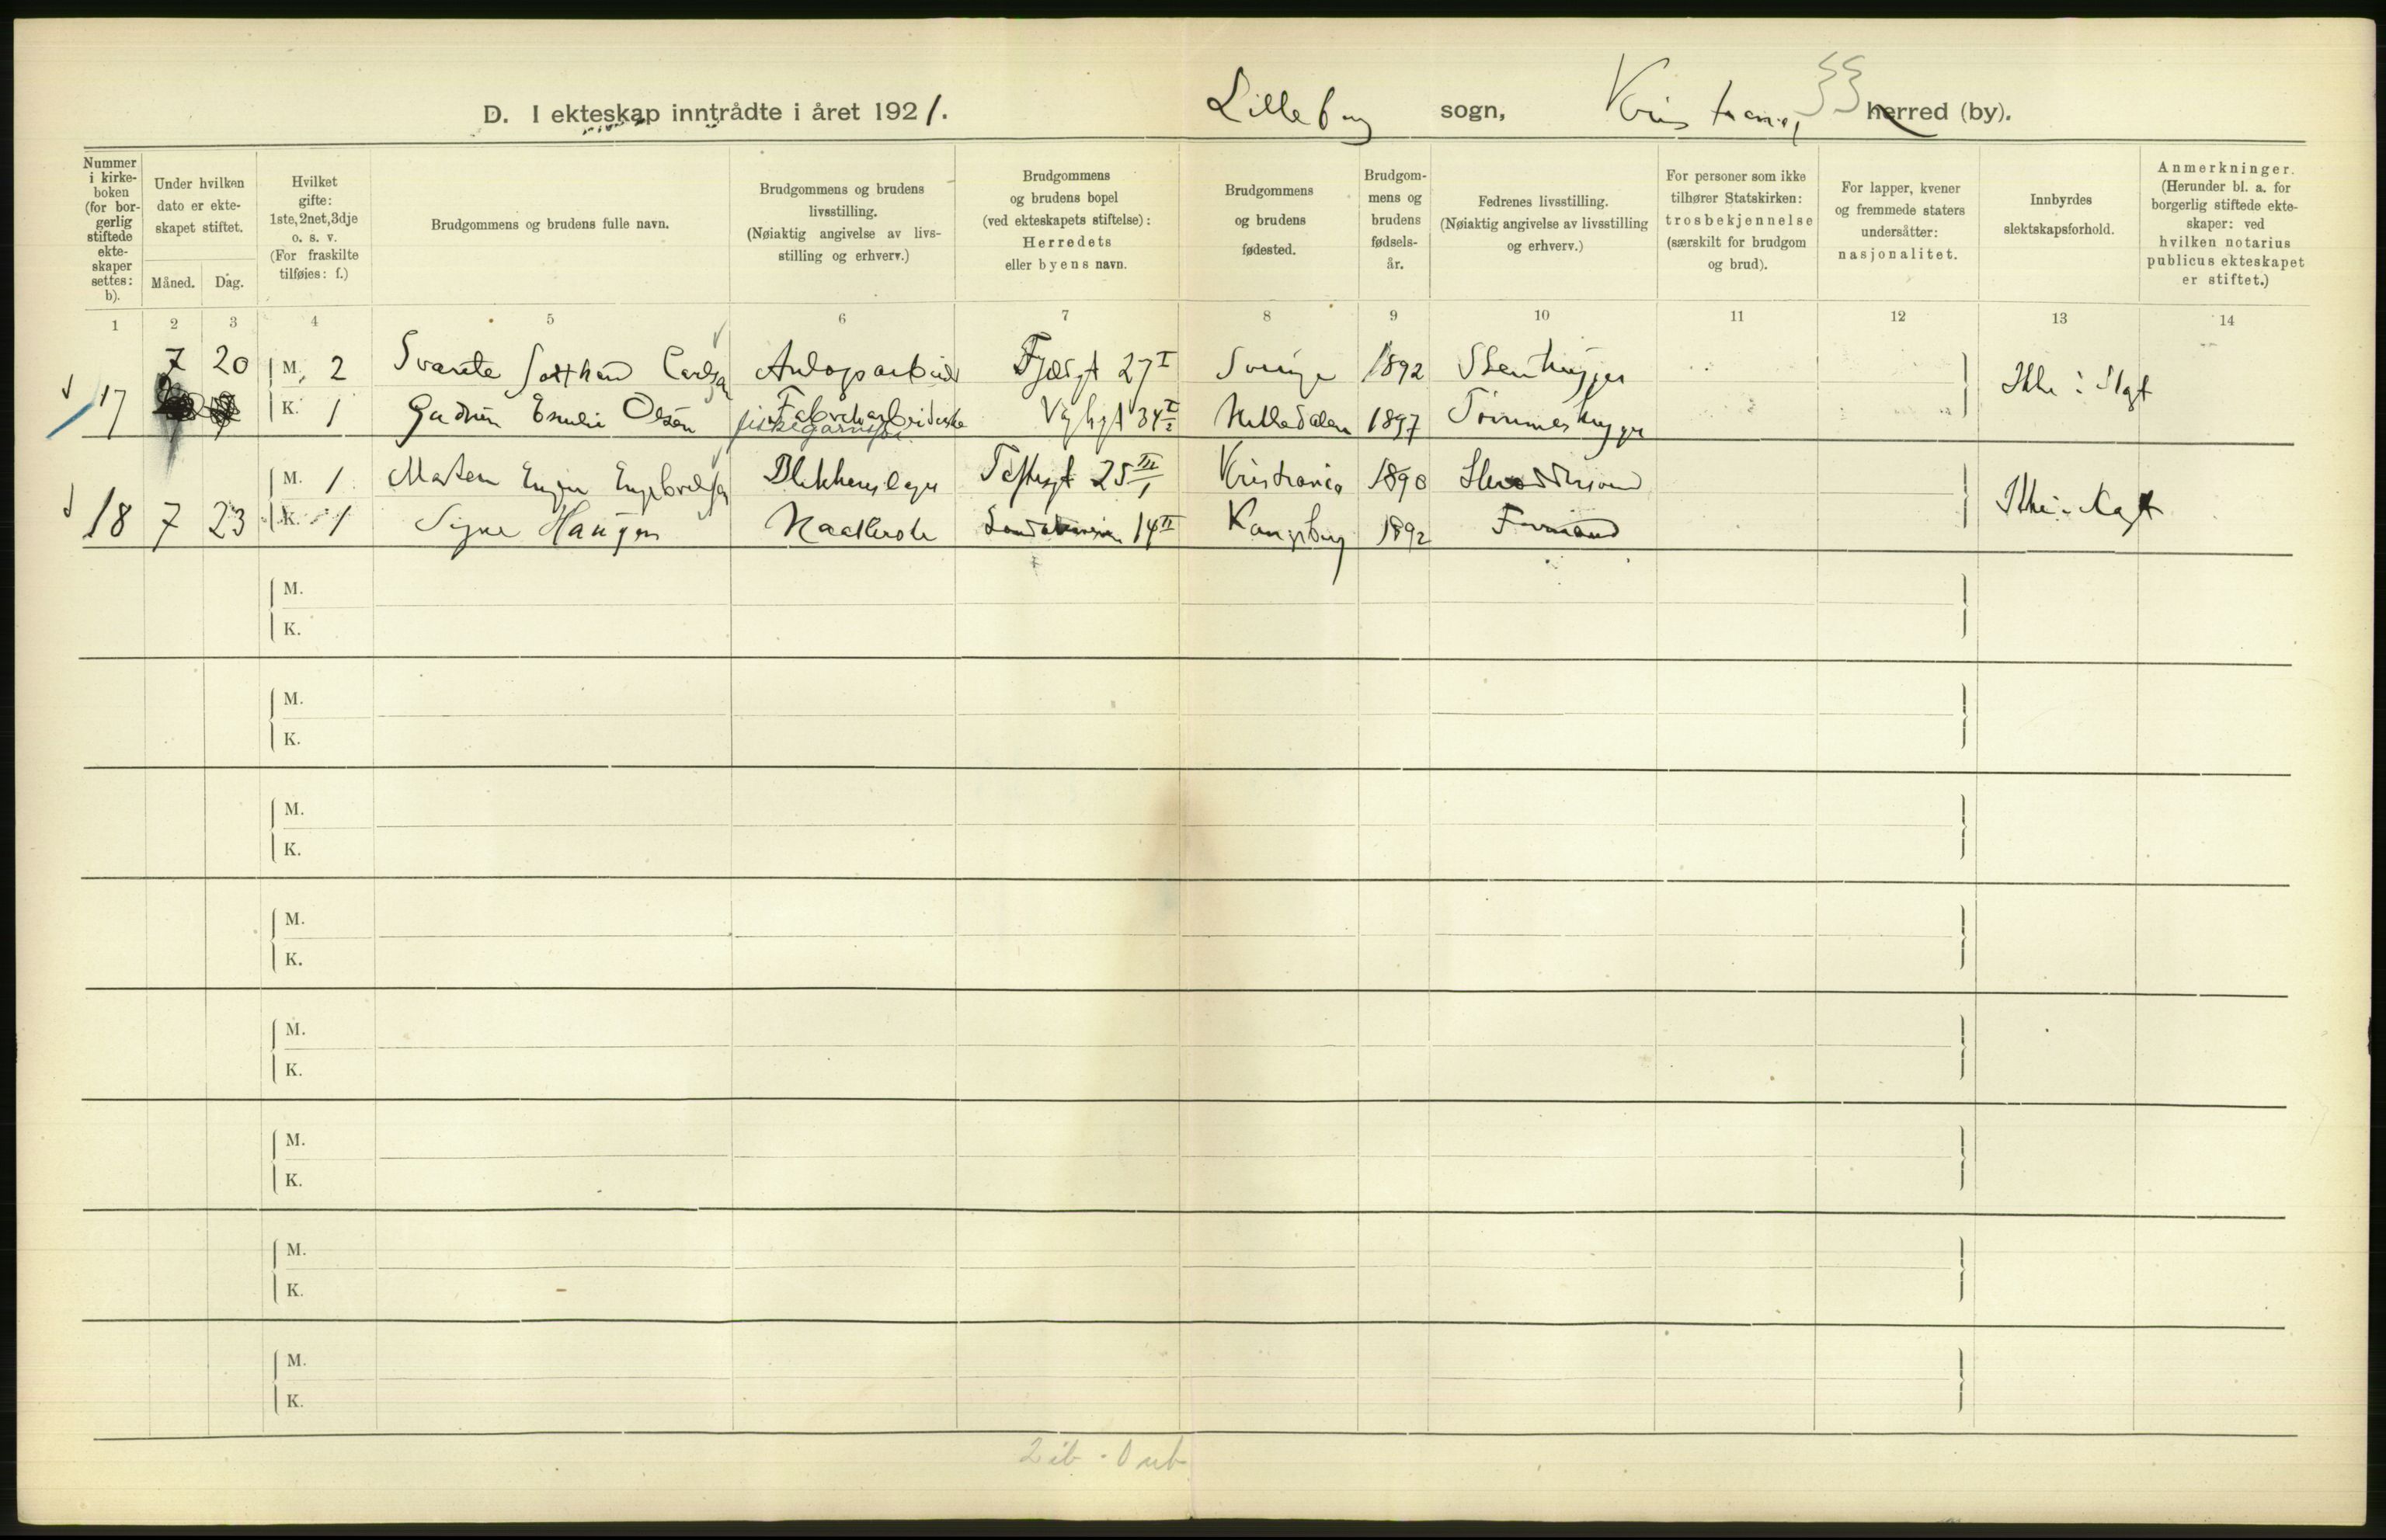 D. I ekteskap inntrådte i året 1921. Lilleborg sogn, Kristiania herred (by).
Nummer i kirkeboken (for borgerlig stiftede ekteskaper settes: b).
Under hvilken dato er ekteskapet stiftet.
Måned. Dag.
Hvilket gifte: 1ste, 2net, 3dje o. s. v. (For fraskilte tilføies: f.)
Brudgommens og brudens fulle navn.
Brudgommens og brudens livsstilling. (Nøiaktig angivelse av livsstilling og erhverv.)
Brudgommens og brudens bopel (ved ekteskapets stiftelse): Herredets eller byens navn.
Brudgommens og brudens fødested.
Brudgommens og brudens fødselsår.
Fedrenes livsstilling. (Nøiaktig angivelse av livsstilling og erhverv.)
For personer som ikke tilhører Statskirken: trosbekjennelse (særskilt for brudgom og brud).
For lapper, kvener og fremmede staters undersåtter: nasjonalitet.
Innbyrdes slektskapsforhold.
Anmerkninger. (Herunder bl. a. for borgerlig stiftede ekteskaper: ved hvilken notarius publicus ekteskapet er stiftet.)
1 2 3 4 5 6 7 8 9 10 11 12 13 14
7 20 M. 2 Svante Gotthard Carlsen Anlægsarbeid 27 I Sverige 1892 Stenhugger
17 K. 1 Gudrun Emilie Olsen Fabrikarbeiderske 34 1897 Tømmerhugger Ikke i Slægt
fiskegarnsfbr.
M. 1 Marten Engebretsen Blikkenslager 25 III Kristiania 1890
18 7 23 K. 1 Signe Haugen 14 II Kongsberg 1892 Formand Ikke i slægt
M.
K.
M.
K.
M.
K.
M.
K.
M.
K.
M.
K.
M.
K.
M.
K.